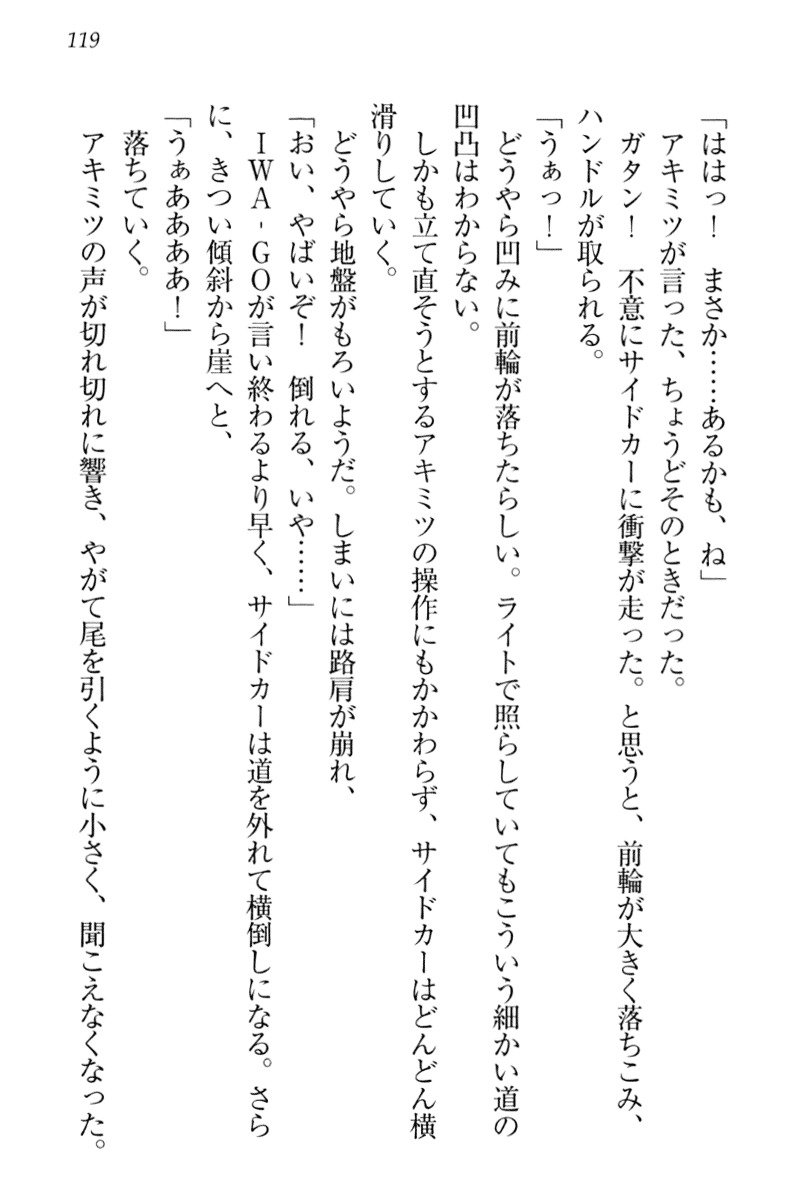 119
「ははっ！　まさか……あるかも、ね」
　アキミツが言った、ちょうどそのときだった。
　ガタン！　不意にサイドカーに衝撃が走った。と思うと、前輪が大きく落ちこみ、
ハンドルが取られる。
「うぁっ！」
　どうやら凹みに前輪が落ちたらしい。ライトで照らしていてもこういう細かい道の
凹凸はわからない。
　しかも立て直そうとするアキミツの操作にもかかわらず、サイドカーはどんどん横
滑りしていく。
　どうやら地盤がもろいようだ。しまいには路肩が崩れ、
「おい、やばいぞ！　倒れる、いや……」
　ＩＷＡ‐ＧＯが言い終わるより早く、サイドカーは道を外れて横倒しになる。さら
に、きつい傾斜から崖へと、
「うぁああああ！」
　落ちていく。
　アキミツの声が切れ切れに響き、やがて尾を引くように小さく、聞こえなくなった。